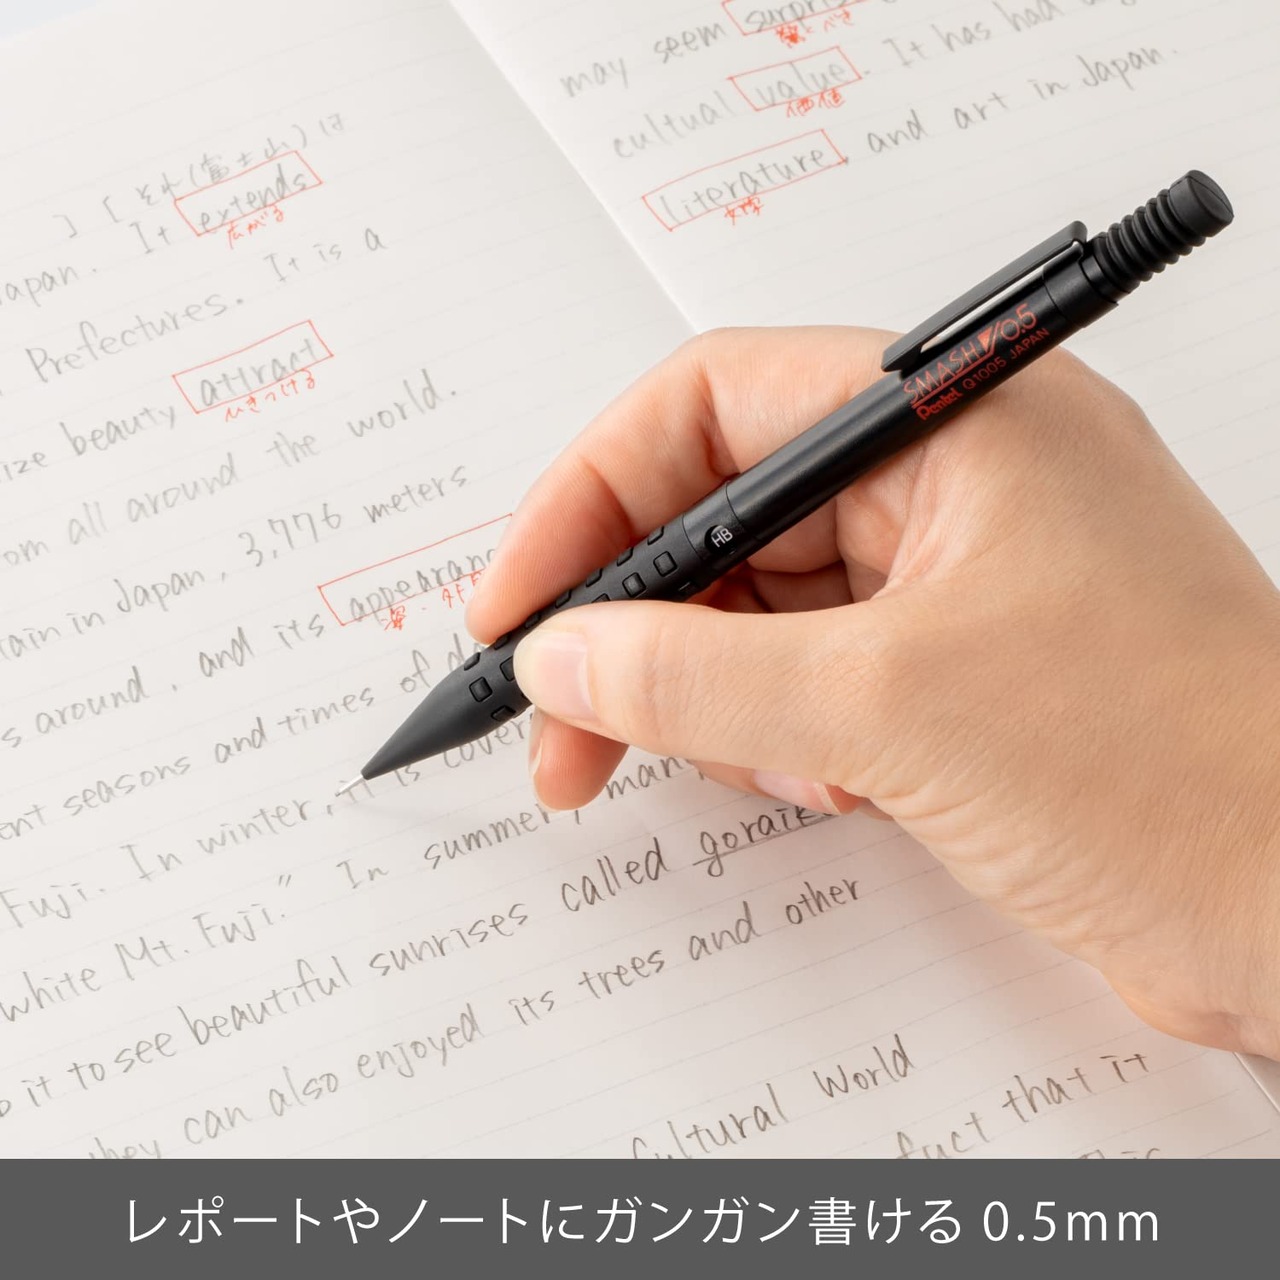 ] [ それ(富士山)は
It extends
広がる
Japan.
Prefectures. It is a
beauty attract
ひきつける
all around the world.
in Japan, 3,776 meters
around, and its appearanc
姿・外見
seasons and times of d
Fuji. In winter, it is cover
white Mt. Fuji." In summer, man
it to see beautiful sunrises called goraik
they can also enjoyed its trees and other
may seem surpris
cultual value. It has had
価値
literature, and art in Japan.
文学
Cultural World
fact that it
SMASH 0.5
Pentel Q1005 JAPAN
HB
レポートやノートにガンガン書ける 0.5mm